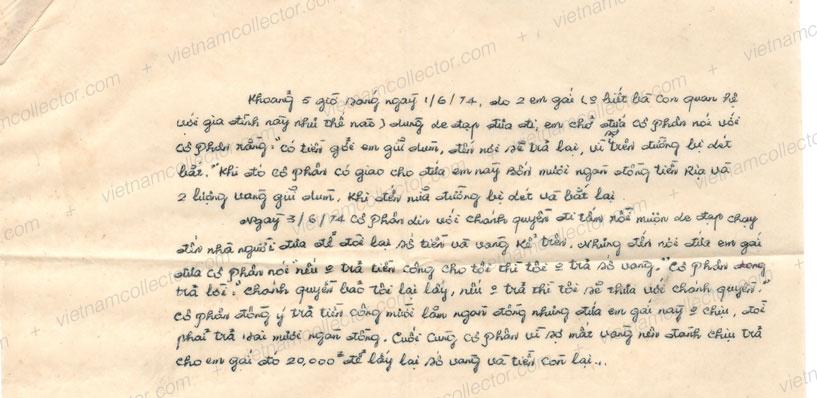 Khoảng 5 giờ sáng ngày 1/6/74, do 2 em gái (o biết bà con quan hệ
với gia đình nầy như thế nào) dùng xe đạp đưa đi em chở đưa cô Phấn nói với
cô Phấn rằng: "có tiền gởi em giữ dùm, đến nơi sẽ trả lại, vì sợ trên đường bị xét
bắt." Khi đó cô Phấn có giao cho đứa em nầy bốn mươi ngàn đồng tiền Ria và
2 lượng vàng giữ dùm. Khi đến nửa đường bị xét và bắt lại
Ngày 3/6/74 cô Phấn xin với chánh quyền đi tắm rồi mượn xe đạp chạy
đến nhà người đưa để đòi lại số tiền và vàng kể trên. Nhưng đến nơi đứa em gái
đưa cô Phấn nói "nếu o trả tiền công cho tôi thì tôi o trả số vàng." Cô Phấn
trả lời: "chánh quyền bảo tôi lại lấy, nếu o trả thì tôi sẽ thưa với chánh quyền."
Cô Phấn đồng ý trả tiền công mười lăm ngàn đồng nhưng đứa em gái nầy o chịu, đòi
phải trả hai mươi ngàn đồng. Cuối cùng cô Phấn vì sợ mất vàng nên đành chịu trả
cho em gái đó 20,000đ để lấy lại số vàng và tiền còn lại...
vietnamcollector.com